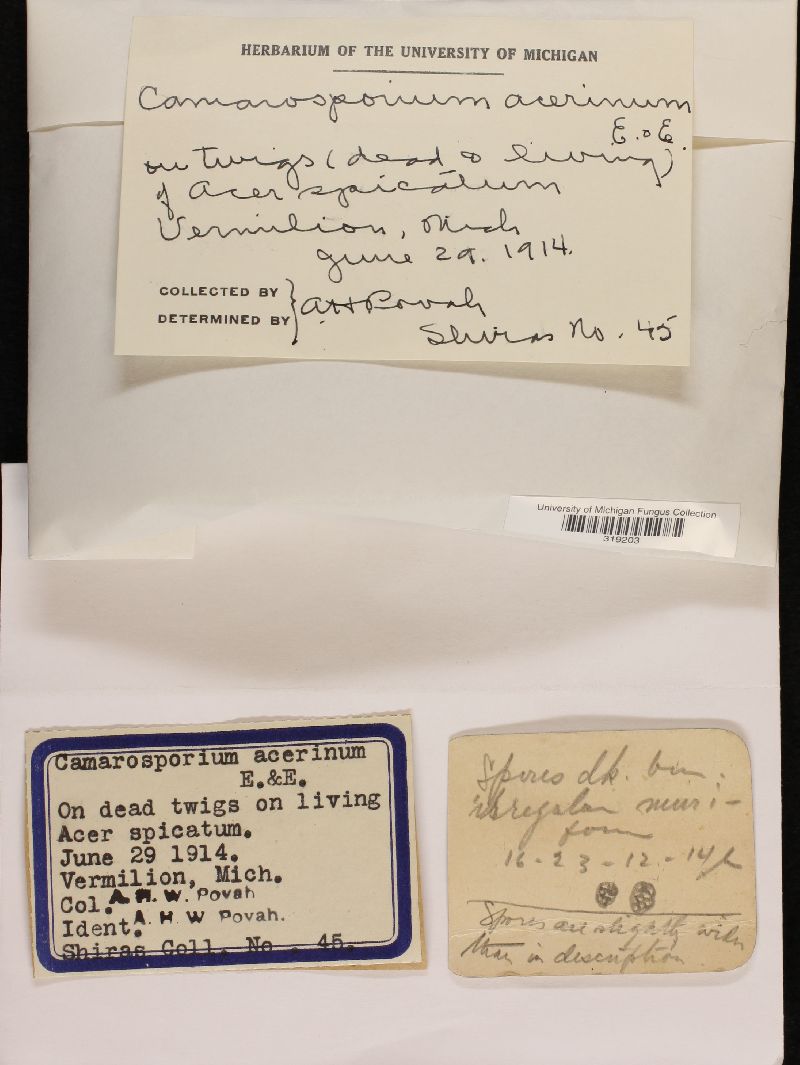 HERBARIUM OF THE UNIVERSITY OF MICHIGAN
Camarosporium acerinum
E. & E.
on twigs (dead & living)
of Acer spicatum
Vermilion, Mich
June 29. 1914.
COLLECTED BY
DETERMINED BY
AHPovah
Shiras No. 45
University of Michigan Fungus Collection
319203
Camarosporium acerinum
E.&E.
On dead twigs on living
Acer spicatum.
June 29 1914.
Vermilion, Mich.
Col. A. H. W. Povah
Ident. A. H. W Povah.
Shiras Coll. No. 45.
Spores dk. brn.
irregular muri-
form
16-23-12-14µ
Spores are slightly wider
than in description.